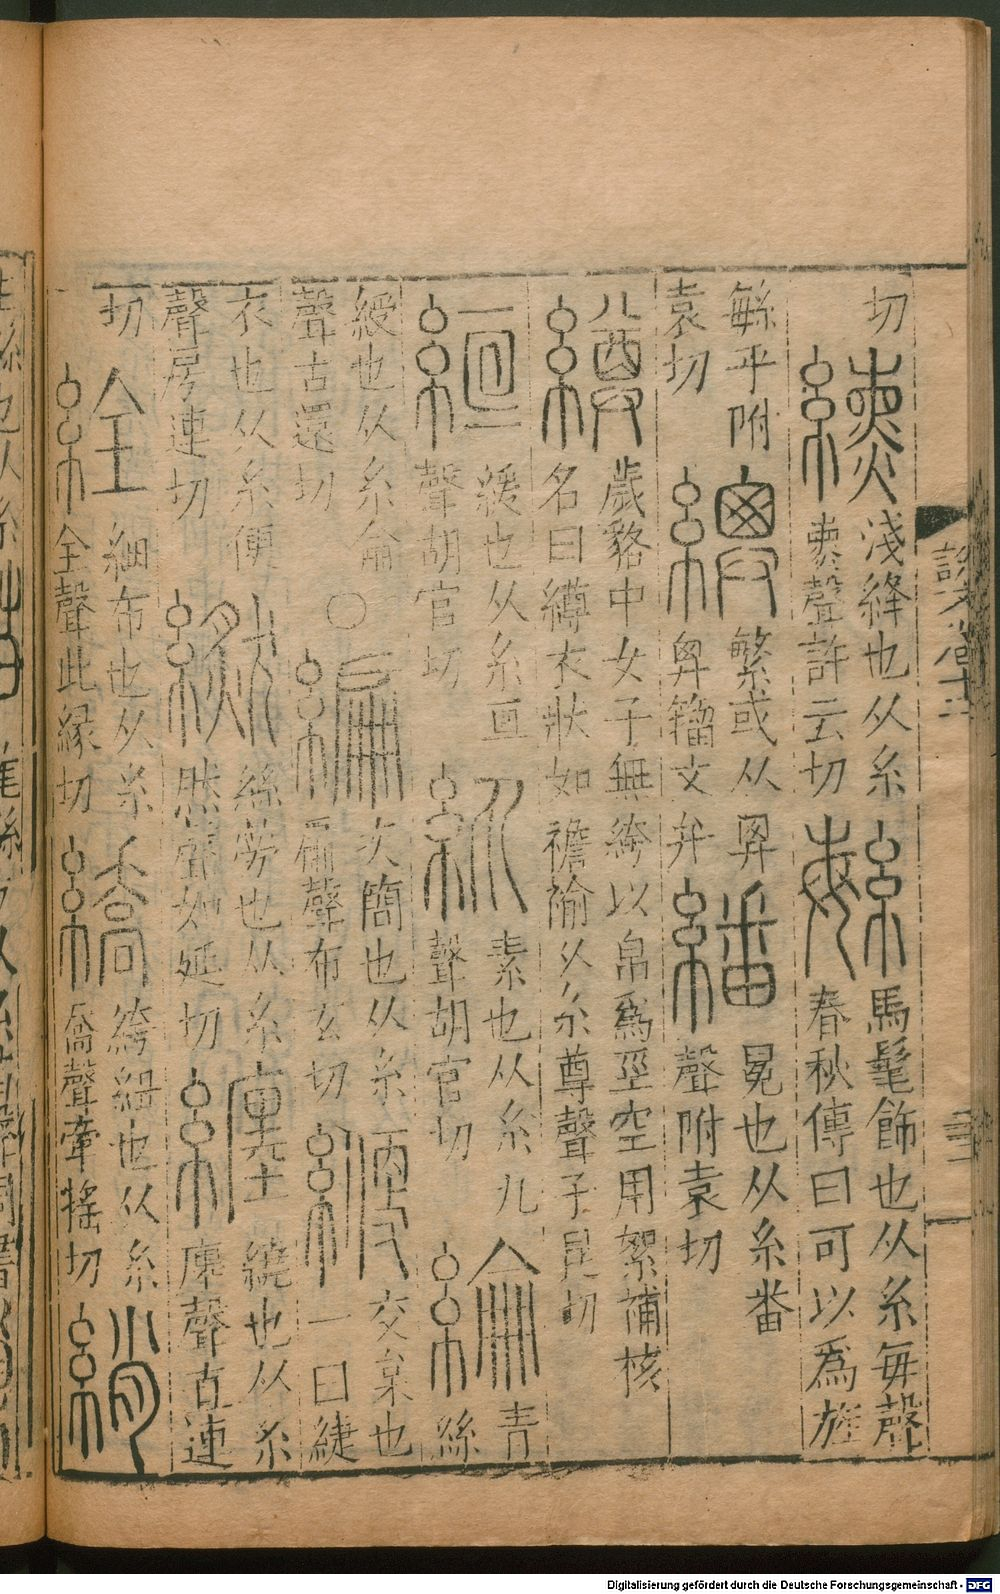 切纁淺絳也从糸熏聲許云切緐馬髦飾也从糸每聲春秋傳曰可以爲旌
緐乎附袁切繁或从𢍏𢍏籀文弁繙冕也从糸番聲附袁切
繜薉貉中女子無絝以帛爲脛空用絮補核名曰繜衣狀如襜褕从糸尊聲子昆切
絙緩也从糸亘聲胡官切紈素也从糸丸聲胡官切綸青絲
綬也从糸侖聲古還切○編次簡也从糸扁聲布玄切緶交枲也一曰緁
衣也从糸便聲房連切繎絲勞也从糸然聲如延切纏繞也从糸廛聲古連
切絟細布也从糸全聲此緣切繑絝紐也从糸喬聲牽搖切綃
Digitalisierung gefördert durch die Deutsche Forschungsgemeinschaft - DFG